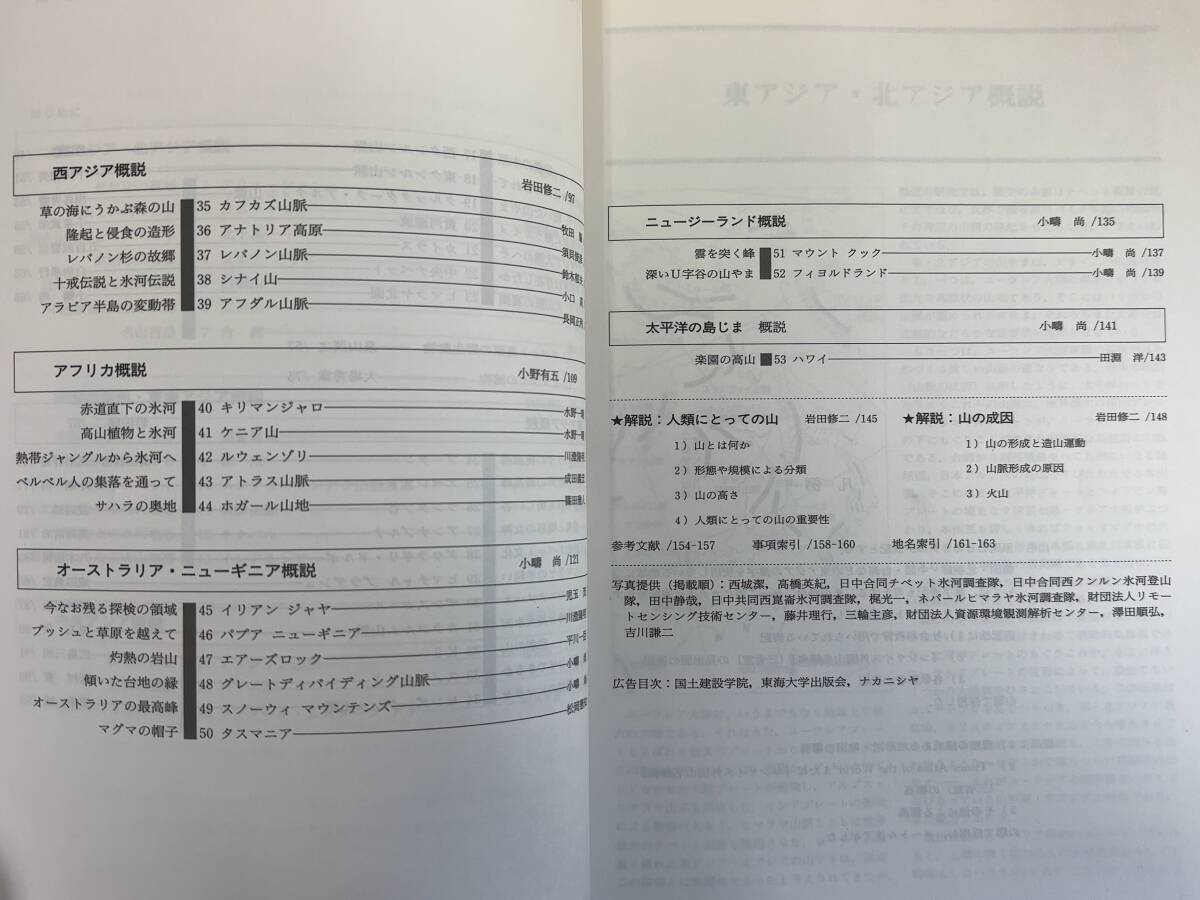 西アジア概説 岩田修二/97
草の海にうかぶ森の山 35 カフカズ山脈 牧田
隆起と侵食の造形 36 アナトリア高原
レバノン杉の故郷 37 レバノン山脈
十戒伝説と氷河伝説 38 シナイ山 小口
アラビア半島の変動帯 39 アフダル山脈
アフリカ概説 小野有五/109
赤道直下の氷河 40 キリマンジャロ 水野一
高山植物と氷河 41 ケニア山 水野一
熱帯ジャングルから氷河へ 42 ルウェンゾリ
ベルベル人の集落を通って 43 アトラス山脈
サハラの奥地 44 ホガール山地
オーストラリア・ニューギニア概説 小疇 尚/121
今なお残る探検の領域 45 イリアン ジャヤ 児玉
ブッシュと草原を越えて 46 パプア ニューギニア
灼熱の岩山 47 エアーズロック 平川一
傾いた台地の縁 48 グレートディバイディング山脈 小疇
オーストラリアの最高峰 49 スノーウィ マウンテンズ 小疇
マグマの帽子 50 タスマニア
ニュージーランド概説 小疇 尚/135
雲を突く峰 51 マウント クック 小疇 尚/137
深いU字谷の山やま 52 フィヨルドランド 小疇 尚/139
太平洋の島じま 概説 小疇 尚/141
楽園の高山 53 ハワイ 田淵 洋/143
★解説：人類にとっての山 岩田修二/145
1）山とは何か
2）形態や規模による分類
3）山の高さ
4）人類にとっての山の重要性
★解説：山の成因 岩田修二/148
1）山の形成と造山運動
2）山脈形成の原因
3）火山
参考文献/154-157 事項索引/158-160 地名索引/161-163
写真提供（掲載順）：西城潔，高橋英紀，日中合同チベット氷河調査隊，日中合同西クンルン氷河登山
隊，田中静哉，日中共同西崑崙氷河調査隊，梶光一，ネパールヒマラヤ氷河調査隊，財団法人リモー
トセンシング技術センター，藤井理行，三輪主彦，財団法人資源環境観測解析センター，澤田順弘，
吉川謙二
広告目次：国土建設学院，東海大学出版会，ナカニシヤ